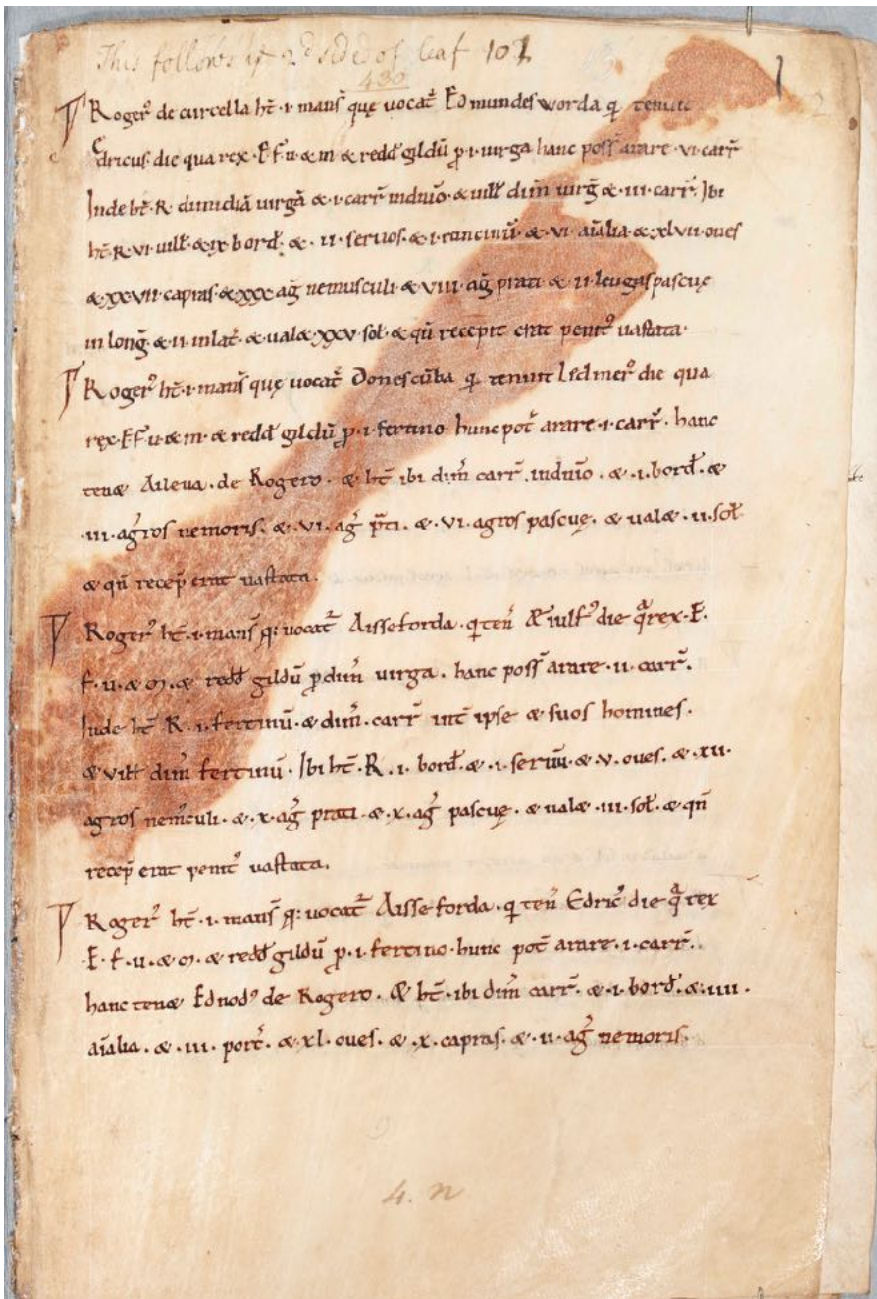 This follows yᵉ 2ᵈ side of leaf 101
430
1
2
Rogerꝰ de curcella ht̄ · i · mans̄ quę vocat̄ Edmundesworda q̄ tenuit
Edricus die qua rex · E · f · u · & m · & redd̄ gildū ꝑ · i · uirga hanc poss̄ arare · vi · carr̄
Inde ht̄ · R · dimidiā uirgā & · i · carr̄ indnīo · & uill̄ dim̄ uirḡ & · iii · carr̄ · Ibi
ht̄ · R · vi · uill̄ · & ix · bord̄ · & · ii · seruos · & · i · roncinū · & · vi · aīalia · & xlvii · oues
& · xxvii · capras · & xxx · aḡ nemusculi · & viii · aḡ prati · & · ii · leugas pascuę
in lonḡ · & · ii · in lat̄ · & ualæ xxv · sol̄ · & qn̄ recepit erat penitꝰ uastata ·
Rogerꝰ ht̄ · i · mans̄ quę uocat̄ Donescūba q̄ tenuit Ledmerꝰ die qua
rex · E · f · u · & · m · & redd̄ gildū ꝑ · i · fertino hunc pot̄ arare · i · carr̄ · hanc
tenæ Aileua · de Rogero · & ht̄ ibi dim̄ carr̄ · indnīo · & · i · bord̄ · &
· iii · agros nemoris · & · vi · aḡ p̄ti · & · vi · agros pascuę · & ualæ · ii · sol̄
& qn̄ recep̄ erat uastata ·
Rogerꝰ ht̄ · i · mans̄ q̄ : uocat̄ Aisseforda · q̄ ten̄ Æilulfꝰ die q̄ rex · E ·
f · u · & m · & redd̄ gildū ꝑ dim̄ uirga · hanc poss̄ arare · ii · carr̄ ·
Inde ht̄ R · i · fertinū · & dim̄ · carr̄ int̄ ipse & suos homines ·
& vill̄ dim̄ fertinū · Ibi ht̄ · R · i · bord̄ · & · i · seruū · & · v · oues · & · xii ·
agros nem̄culi · & · x · aḡ prati · & · x · aḡ pascuę · & ualæ · iii · sol̄ · & qn̄
recep̄ erat penitꝰ uastata ·
Rogerꝰ ht̄ · i · mans̄ q̄ : uocat̄ Aisseforda · q̄ ten̄ Edricꝰ die q̄ rex
· E · f · u · & m · & redd̄ gildū ꝑ · i · fertino · hunc pot̄ arare · i · carr̄ ·
hanc tenæ Ednodꝰ de Rogero · & ht̄ · ibi dim̄ carr̄ · & · i · bord̄ · & · iiii ·
aīalia · & · iii · porc̄ · & · xl · oues · & · x · capras · & · ii · aḡ nemoris ·
4. n